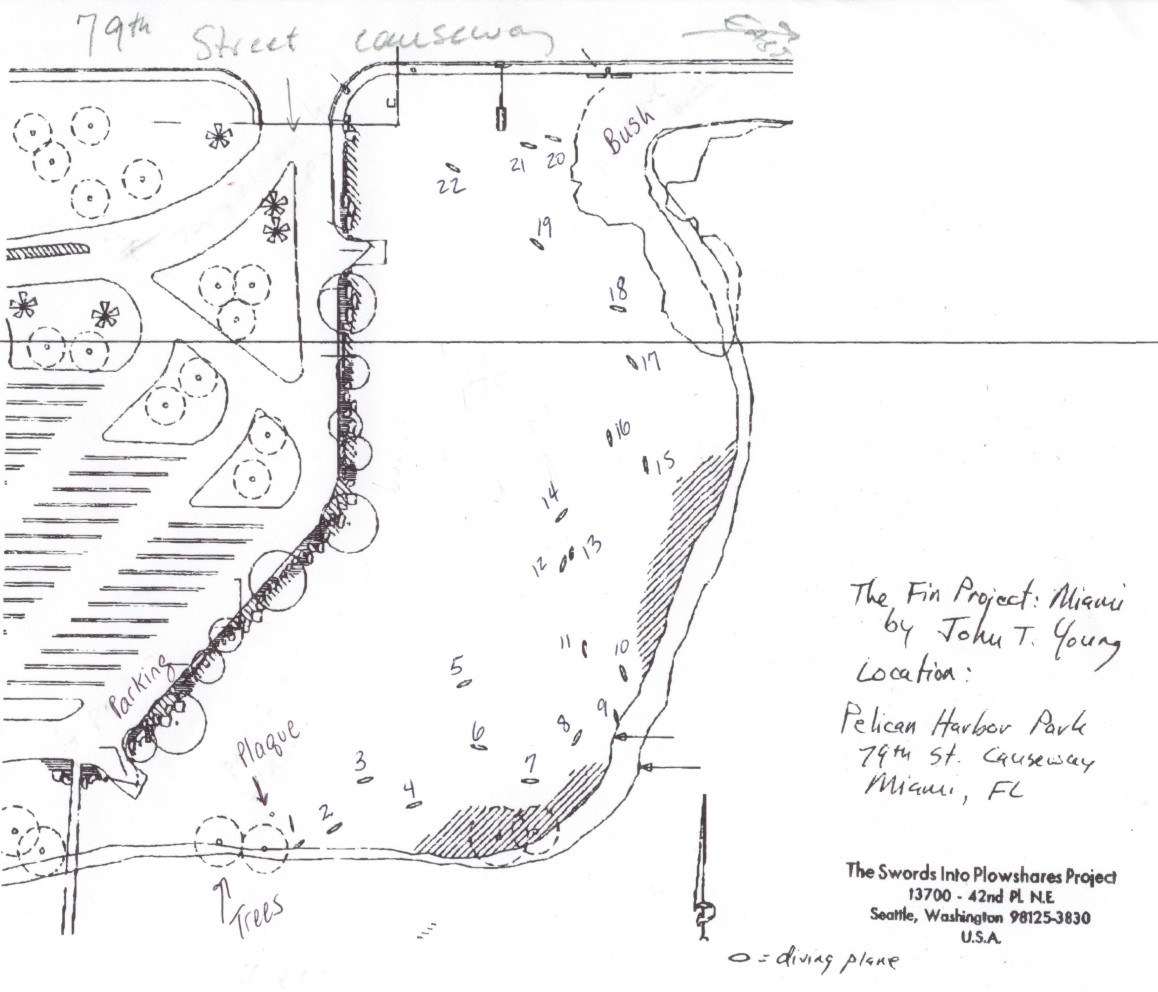 79th Street Causeway
East
Bush
22
21
20
19
18
17
16
15
14
12
13
11
10
9
5
6
8
7
3
4
2
1
Parking
Plaque
Trees
The Fin Project: Miami
by John T. Young
Location:
Pelican Harbor Park
79th St. Causeway
Miami, FL
The Swords Into Plowshares Project
13700 - 42nd Pl. N.E.
Seattle, Washington 98125-3830
U.S.A.
= diving plane